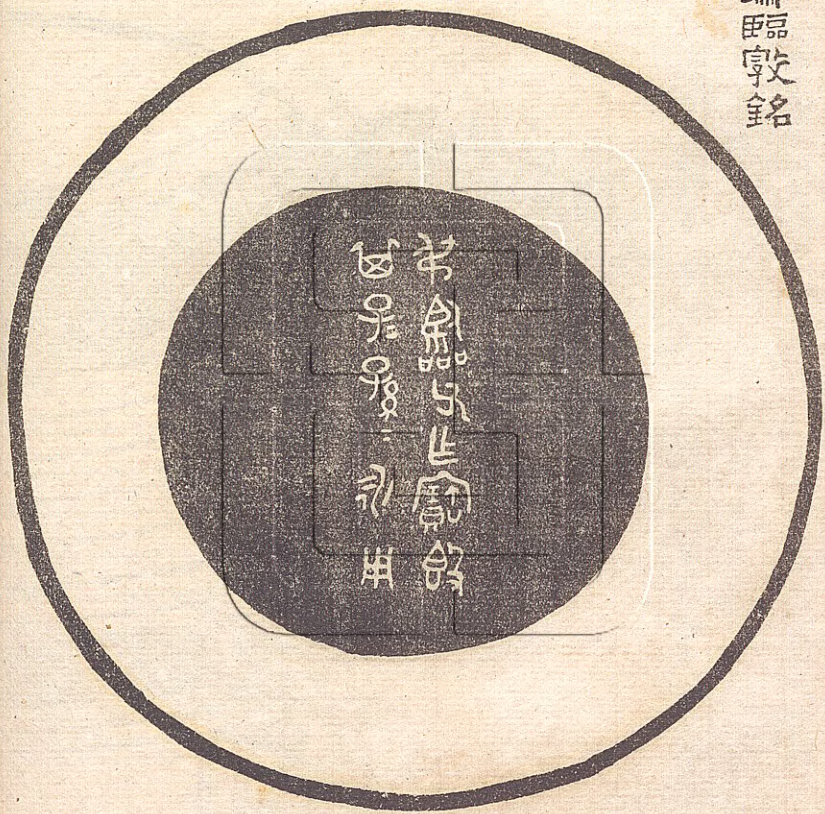 臨敦銘
叔臨父乍寶𣪘
其子=孫=永用